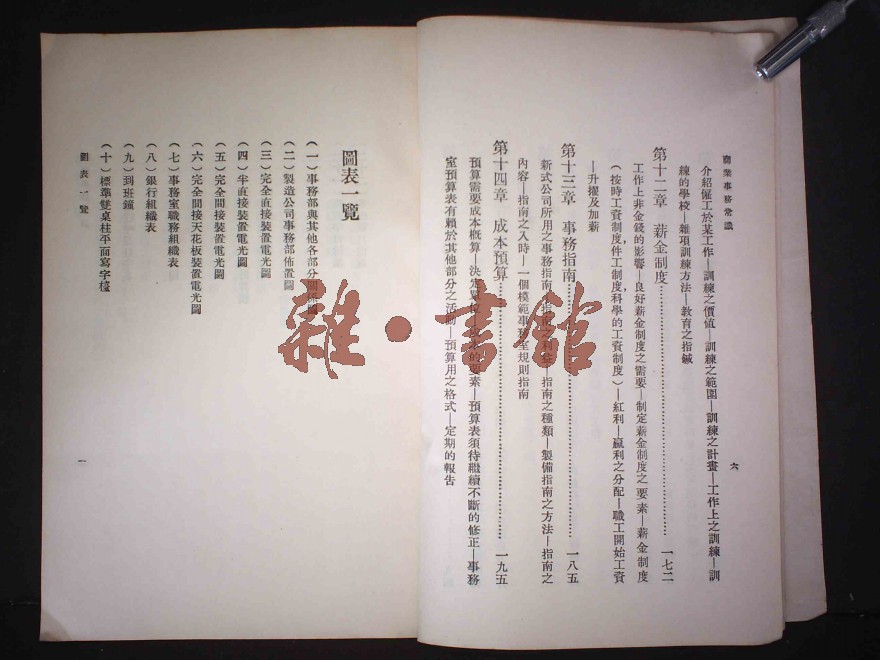 商業事務常識
六
介紹僱工於某工作—訓練之價值—訓練之範圍—訓練之計畫—工作上之訓練—訓
練的學校—雜項訓練方法—教育之指鍼
第十二章 薪金制度……一七二
工作上非金錢的影響—良好薪金制度之需要—制定薪金制度之要素—薪金制度
(按時工資制度,件工制度,科學的工資制度)—紅利—贏利之分配—職工開始工資
—升擢及加薪
第十三章 事務指南……一八五
新式公司所用之事務指南—指南之利益—指南之種類—製備指南之方法—指南之
內容—指南之入時—一個模範事務室規則指南
第十四章 成本預算……一九五
預算需要成本概算—決定單位—的要素—預算表須待繼續不斷的修正—事務
室預算表有賴於其他部分之活動—預算用之格式—定期的報告
圖表一覽
(一)事務部與其他各部分關係圖
(二)製造公司事務部佈置圖
(三)完全直接裝置電光圖
(四)半直接裝置電光圖
(五)完全間接裝置電光圖
(六)完全間接天花板裝置電光圖
(七)事務室職務組織表
(八)銀行組織表
(九)到班鐘
(十)標準雙桌柱平面寫字檯
圖表一覽
一
雜·書館